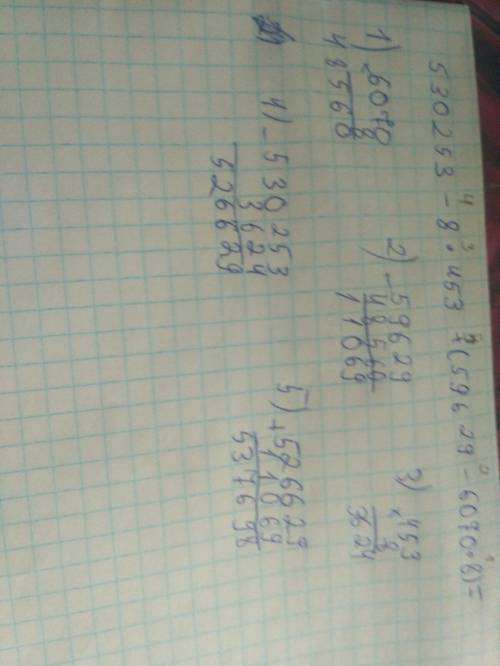 530253 - 8 · 453 + (59629 - 6070 · 8) =
4 3 5 2 1
1) × 6070
8
48560
2) - 59629
48560
11069
3) × 453
8
3624
4) - 530253
3624
526629
5) + 526629
11069
537698